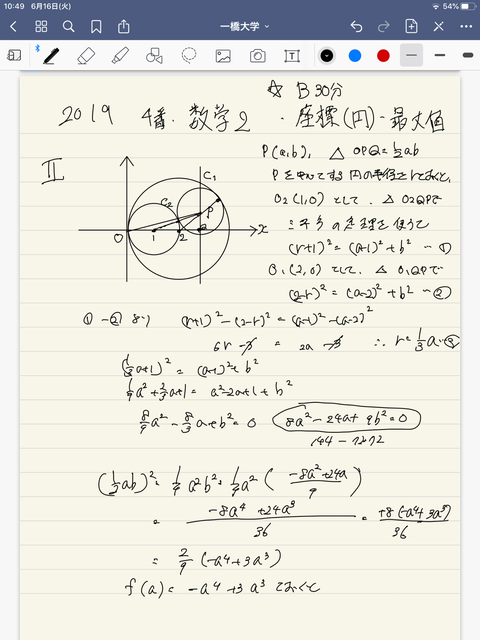 10:49 6月16日(火)
54%
一橋大学
☆ B 30分
2019 4番. 数学2 ・座標(円)・最大値
II
P(a,b), △OPQ=½ab
Pを中心とする円の半径をrとおくと,
O₂(1,0)として, △O₂QPで
三平方の定理を使うと
(r+1)²=(a-1)²+b² …①
O₁(2,0)として, △O₁QPで
(2-r)²=(a-2)²+b² …②
C₁
C₂
P
O 1 2 a x
①-②より (r+1)²-(2-r)²=(a-1)²-(a-2)²
6r-3 = 2a-3 ∴r=⅓a…③
(⅓a+1)²=(a-1)²+b²
1/9a²+2/3a+1=a²-2a+1+b²
8/9a²-8/3a+b²=0 8a²-24a+9b²=0
(½ab)²=¼a²b²=¼a²(-8a²+24a/9)
= -8a⁴+24a³/36 = +8(-a⁴+3a³)/36
= 2/9(-a⁴+3a³)
f(a)=-a⁴+3a³ とおくと